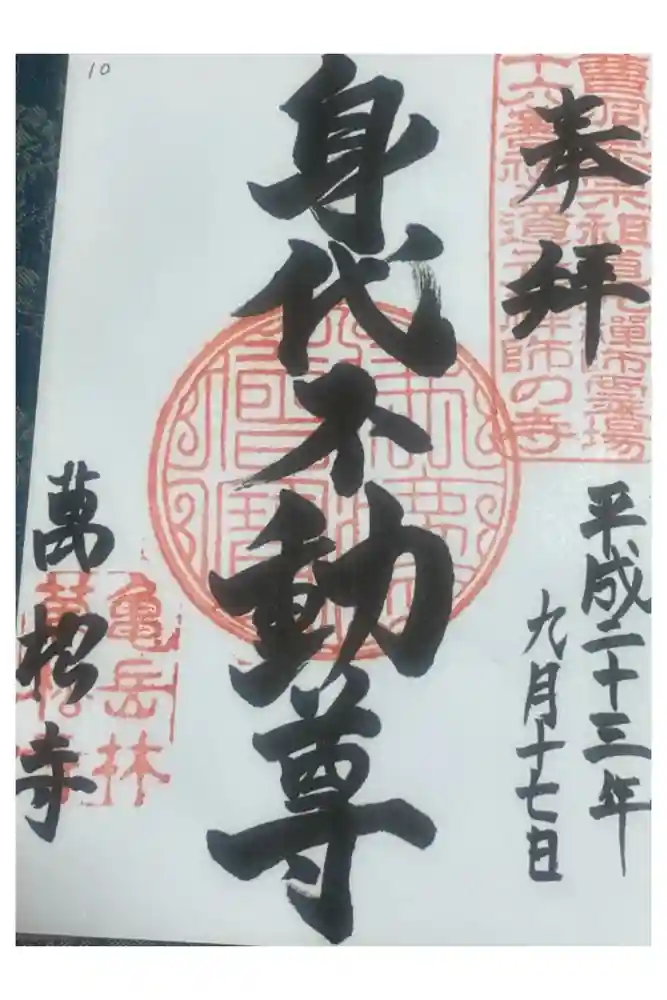 奉拝
曹洞宗宗祖道元禅師霊場
十六善神道元禅師の寺
平成二十三年
九月十七日
身代不動尊
萬松寺
亀岳林
萬松寺
10